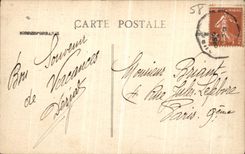 58
CARTE POSTALE
Bon Souvenir
de Vacances
Monsieur Briant
Rue Jules Lefebvre
Paris 9ème